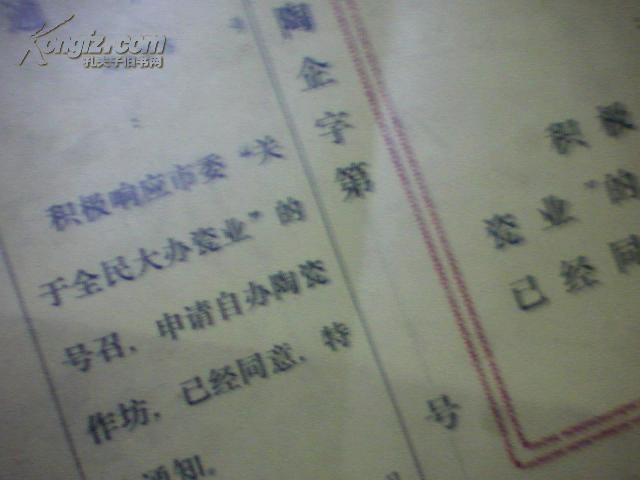 Kongfz.com
孔夫子旧书网
积极响应市委“关
于全民大办瓷业”的
号召，申请自办陶瓷
作坊，已经同意，特
通知。
陶企字第 号
积极
瓷业”的
已经同